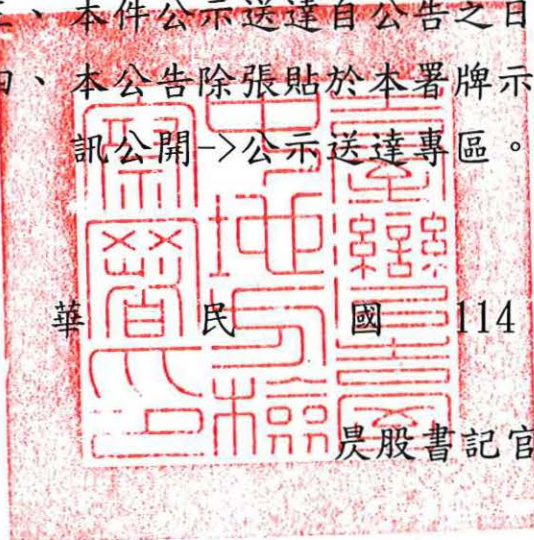 三、本件公示送達自公告之日
四、本公告除張貼於本署牌示
訊公開->公示送達專區。
華民國114
昃股書記官
臺灣臺
中地方檢
察署印